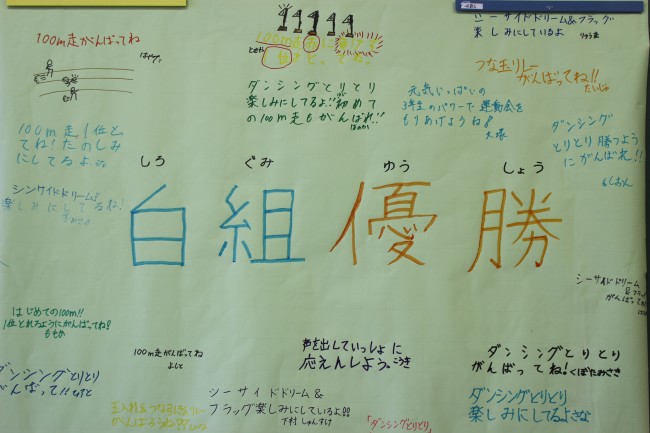 100m走がんばってね
はやと
11111
100m走
シーサイドドリーム&フラッグ
楽しみにしているよ
りゅうま
つな玉リレー
がんばってね!!
たいじゅ
ダンシングとりとり
楽しみにしてるよ!!初めて
の100m走もがんばれ!!
ほのか
元気いっぱいの
3年生のパワーで運動会を
もりあげようね!
大塚
ダンシング
とりとり勝つよう
にがんばれ!!
しおん
100m走1位とっ
てね!たのしみ
にしてるよ
しろ ぐみ ゆう しょう
白組優勝
シンサイドドリーム
楽しみにしてるね!
シーサイドドリーム
&フラッグ
がんばって
はじめての100m!!
1位とれるようにがんばってね!
ももか
100m走がんばってね
よしと
声を出していっしょに
応えんしよう。こうき
ダンシングとりとり
がんばってね!くぼたみさき
ダンシングとりとり
がんばって!!
玉入れ&つな引きリレー
がんばろうね!!
シーサイドドリーム&
フラッグ楽しみにしているよ!!
下村しゅんすけ
「ダンシングとりとり」
ダンシングとりとり
楽しみにしてるよさな